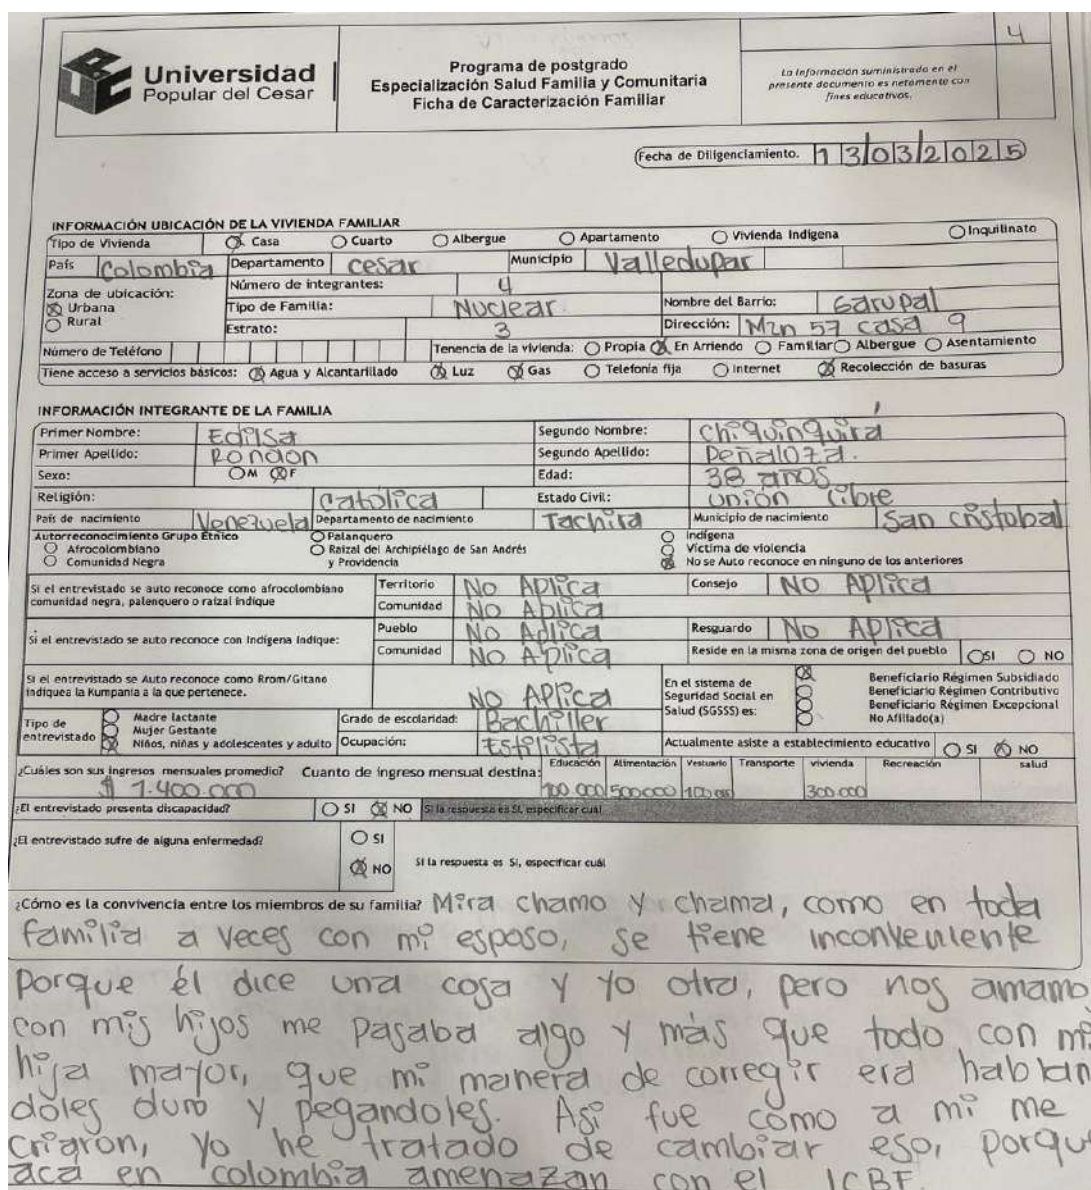 4
Universidad
Popular del Cesar
Programa de postgrado
Especialización Salud Familia y Comunitaria
Ficha de Caracterización Familiar
La información suministrada en el
presente documento es netamente con
fines educativos.
Fecha de Diligenciamiento. 13/03/2025
INFORMACIÓN UBICACIÓN DE LA VIVIENDA FAMILIAR
Tipo de Vivienda Casa Cuarto Albergue Apartamento Vivienda Indigena Inquilinato
País Colombia Departamento cesar Municipio Valledupar
Zona de ubicación: Número de integrantes: 4
Urbana Tipo de Familia: Nuclear. Nombre del Barrio: Garupal
Rural Estrato: 3 Dirección: Mzn 57 casa 9
Número de Teléfono Tenencia de la vivienda: Propia En Arriendo Familiar Albergue Asentamiento
Tiene acceso a servicios básicos: Agua y Alcantarillado Luz Gas Telefonía fija Internet Recolección de basuras
INFORMACIÓN INTEGRANTE DE LA FAMILIA
Primer Nombre: Edilsa Segundo Nombre: Chiquinquirá
Primer Apellido: Rondon Segundo Apellido: Peñaloza.
Sexo: M F Edad: 38 años
Religión: Catolica Estado Civil: unión libre
País de nacimiento Venezuela Departamento de nacimiento Tachira Municipio de nacimiento San cristobal
Autorreconocimiento Grupo Étnico Palanquero Indígena
Afrocolombiano Raizal del Archipiélago de San Andrés Víctima de violencia
Comunidad Negra y Providencia No se Auto reconoce en ninguno de los anteriores
Si el entrevistado se auto reconoce como afrocolombiano Territorio No Aplica Consejo No Aplica
comunidad negra, palenquero o raizal indique Comunidad No Aplica
Si el entrevistado se auto reconoce con Indígena Indique: Pueblo No Aplica Resguardo No Aplica
Comunidad No Aplica Reside en la misma zona de origen del pueblo SI NO
Si el entrevistado se Auto reconoce como Rrom/Gitano
indiquea la Kumpania a la que pertenece. No Aplica
En el sistema de
Seguridad Social en
Salud (SGSSS) es:
Beneficiario Régimen Subsidiado
Beneficiario Régimen Contributivo
Beneficiario Régimen Excepcional
No Afiliado(a)
Tipo de
entrevistado
Madre lactante
Mujer Gestante
Niños, niñas y adolescentes y adulto
Grado de escolaridad: Bachiller
Ocupación: Estilista Actualmente asiste a establecimiento educativo SI NO
¿Cuáles son sus ingresos mensuales promedio? Cuanto de ingreso mensual destina: Educación Alimentación Vestuario Transporte vivienda Recreación salud
$ 1.400.000 100.000 500000 100.000 300.000
¿El entrevistado presenta discapacidad? SI NO Si la respuesta es SI, especificar cuál
¿El entrevistado sufre de alguna enfermedad? SI
NO Si la respuesta es Si, especificar cuál
¿Cómo es la convivencia entre los miembros de su familia? Mira chamo y chama, como en toda
familia a veces con mi esposo, se tiene inconveniente
porque él dice una cosa y yo otra, pero nos amamo
con mis hijos me pasaba algo y más que todo con mi
hija mayor, que mi manera de corregir era hablan
doles duro y pegandoles. Asi fue como a mi me
criaron, yo he tratado de cambiar eso, porque
acá en colombia amenazan con el ICBF.